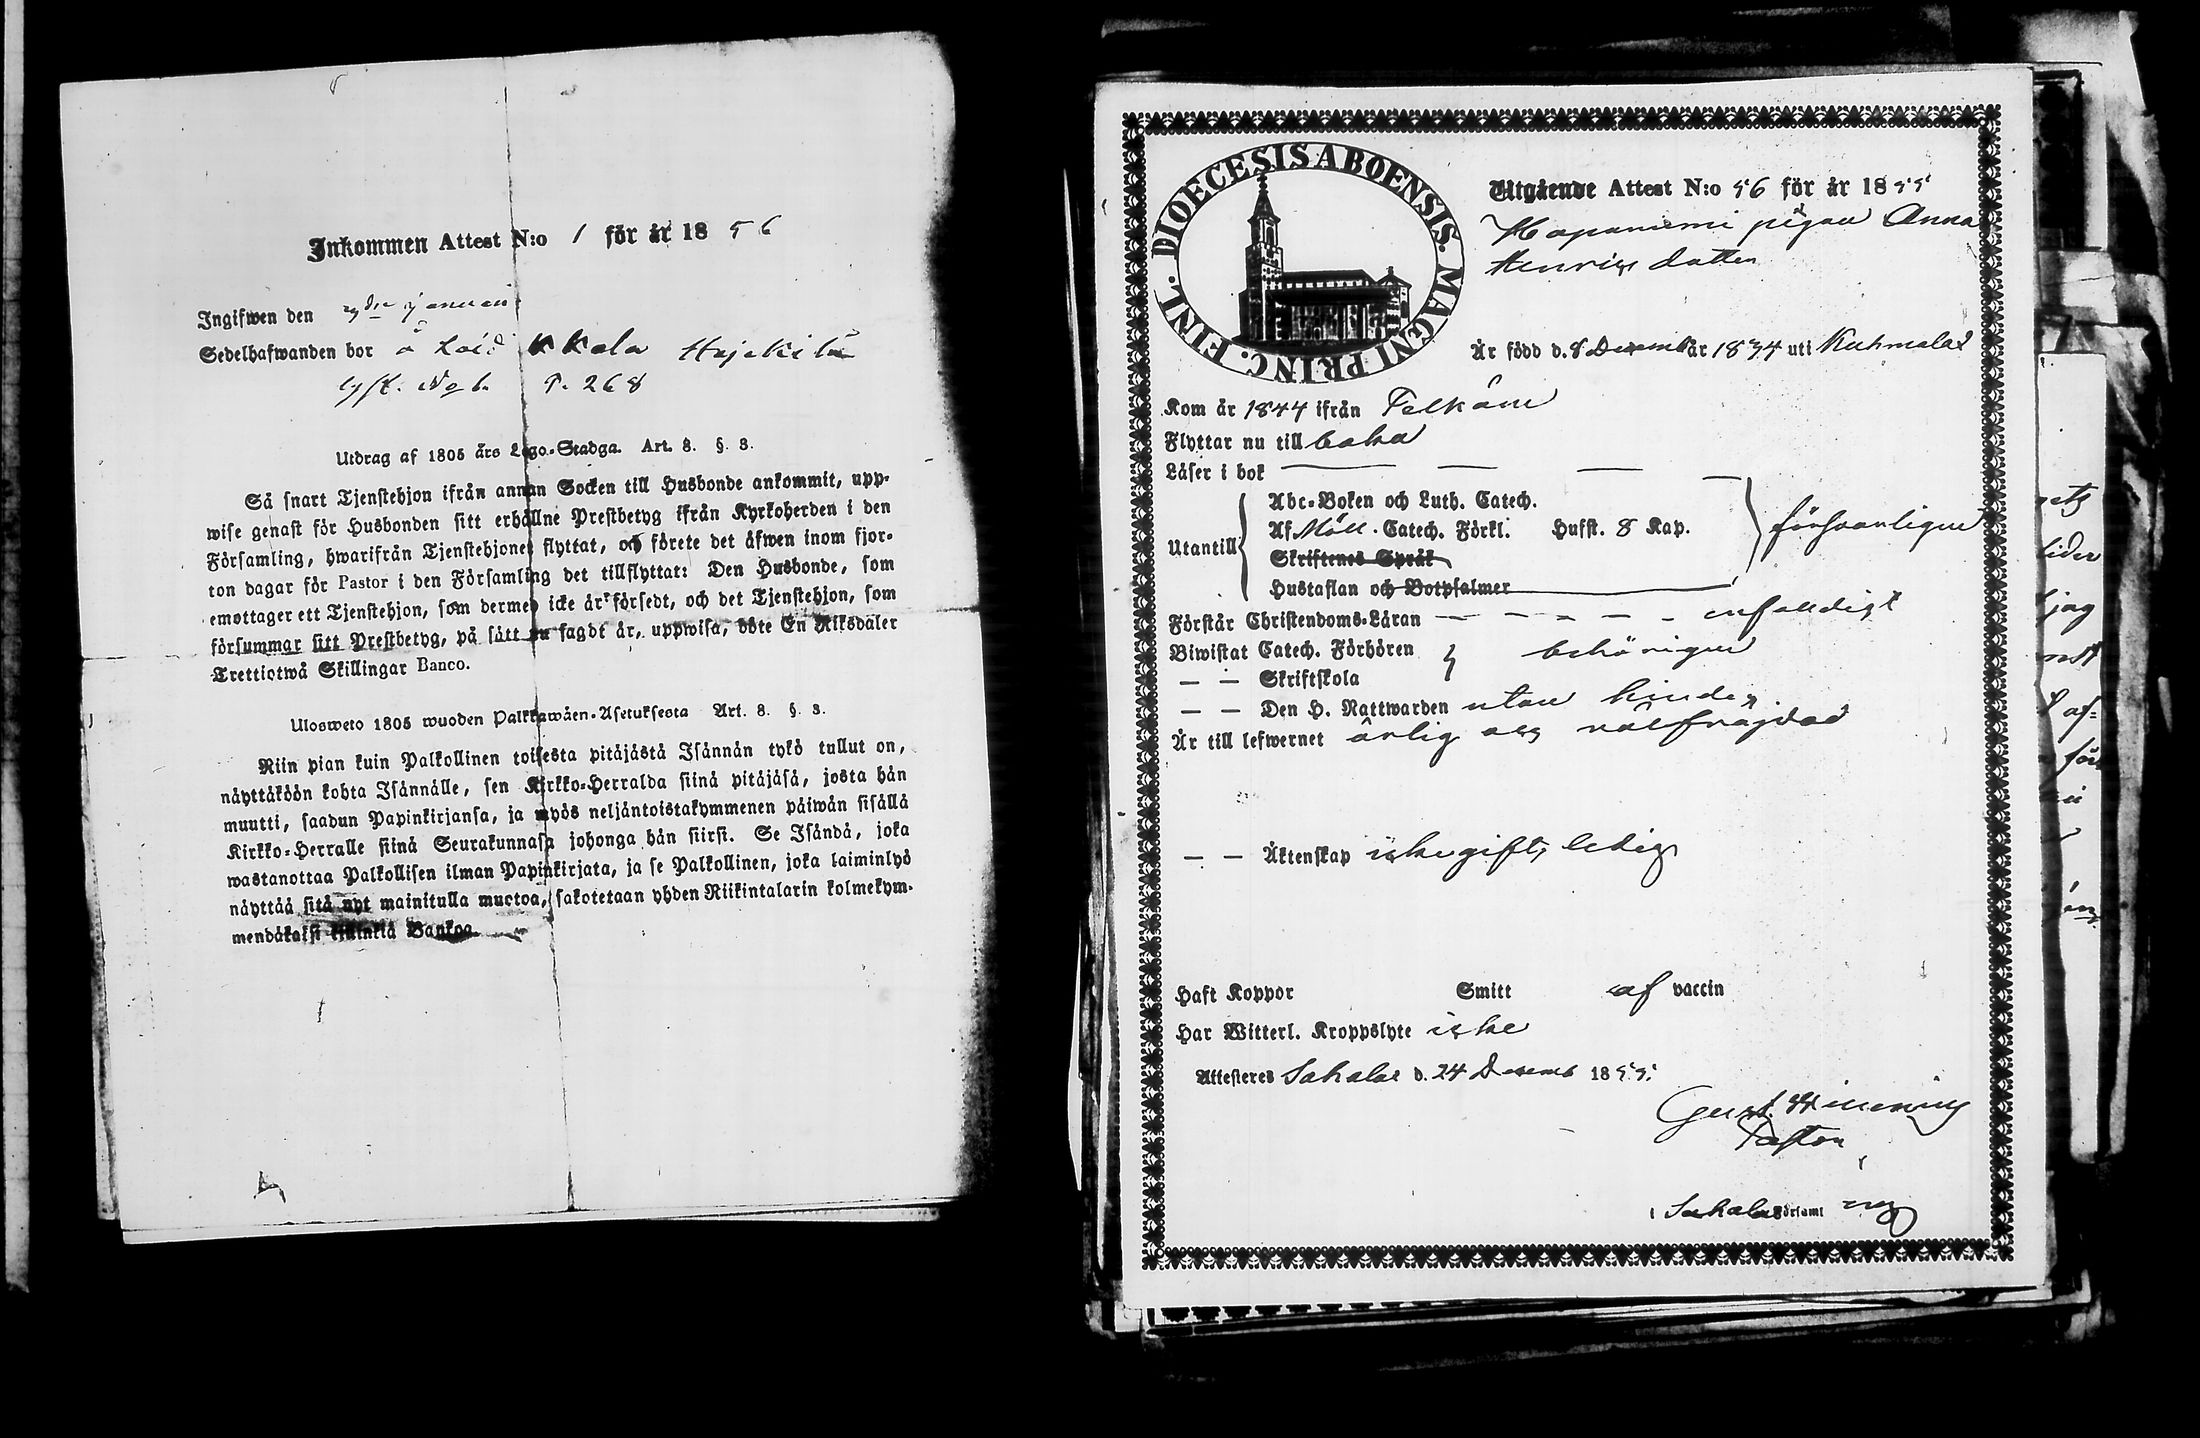 Inkommen Attest N:o 1 för år 1856
Ingifwen den januari
Sedelhafwanden bor å
P. 268
Utdrag af 1805 års Lego-Stadga. Art. 8. §. 8.
Så snart Tjenstehjon ifrån annan Socken till Husbonde ankommit, upp-
wise genast för Husbonden sitt erhållne Prestbetyg ifrån Kyrkoherden i den
Församling, hwarifrån Tjenstehjonet flyttat, och förete det äfwen inom fjor-
ton dagar för Pastor i den Församling det tillflyttat: Den Husbonde, som
emottager ett Tjenstehjon, som dermed icke är försedt, och det Tjenstehjon, som
försummar sitt Prestbetyg, på sätt nu sagdt är, uppwisa, böte En Riksdaler
Trettiotwå Skillingar Banco.
Ulosweto 1805 wuoden Palkkawäen-Asetuksesta Art. 8. §. 8.
Niin pian kuin Palkollinen toisesta pitäjästä Isännän tykö tullut on,
näyttäköön kohta Isännälle, sen Kirkko-Herralda siinä pitäjäsä, josta hän
muutti, saadun Papinkirjansa, ja myös neljäntoistakymmenen päiwän sisällä
Kirkko-Herralle siinä Seurakunnasa johonga hän siirsi. Se Isändä, joka
wastanottaa Palkollisen ilman Papinkirjata, ja se Palkollinen, joka laiminlyö
näyttää sitä nyt mainitulla muotoa, sakotetaan yhden Riikintalarin kolmekym-
mendäkaksi killinkiä Bankoa
DIOECESIS ABOENSIS. MAGNI PRINC. FINL.
Utgående Attest N:o 56 för år 1855
Haponiemi pigan Anna
Henrics dotter
Är född d. 8 Decemb år 1834 uti Kuhmalax
Kom år 1844 ifrån Pelkäne
Flyttar nu till baka
Läser i bok
Utantill
Abc-Boken och Luth. Catech.
Af Möll. Catech. Förkl. Husst. 8 Kap. försvarligen
Skriftenes Språk
Hustaflan och Botpsalmer
Förstår Christendoms-Läran enfaldigt
Biwistat Catech. Förhören behörigen
— — Skriftskola
— — Den H. Nattwarden utan hinder
Är till lefwernet ärlig och välfrägdad
— — Äktenskap icke gift, ledig
Haft Koppor Smitt af vaccin
Har Witterl. Kroppslyte icke
Attesteres Sahalax d. 24 Decemb 1855.
Gust.
Pastor
i Sahalax Församl ing